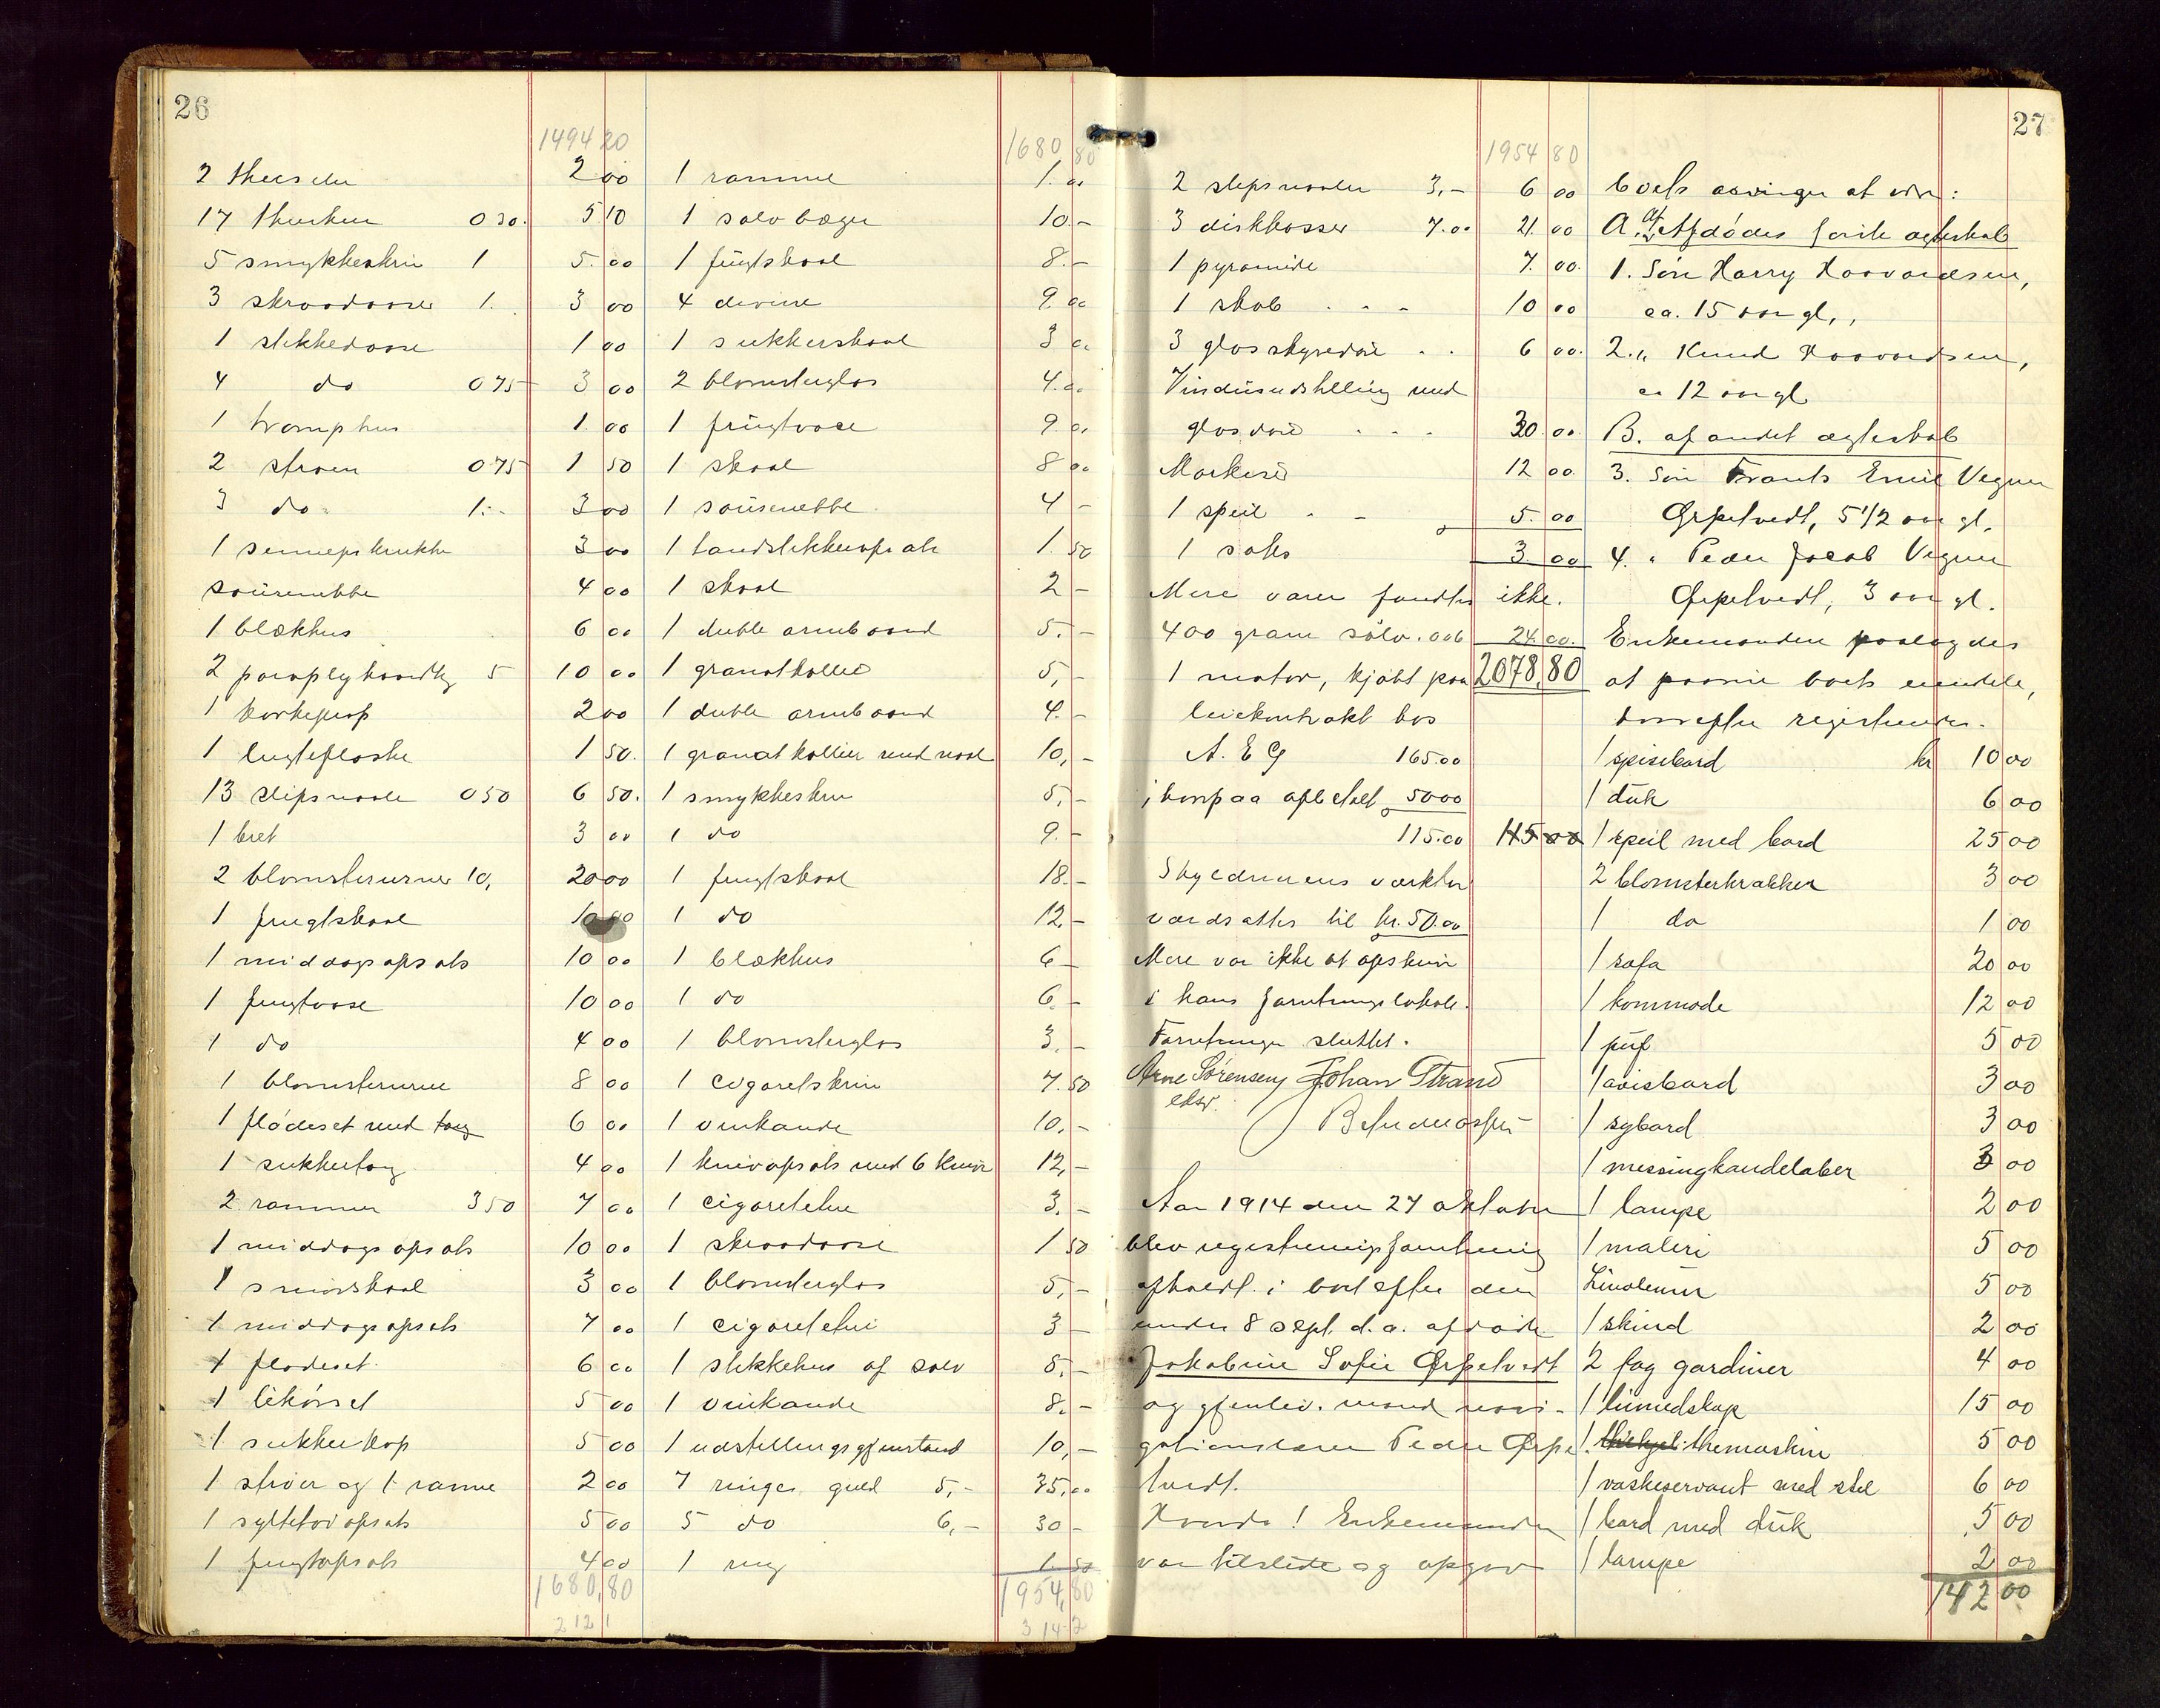 26
1494 20
2 theesier 2 00
17 theskeer 0 30. 5 10
5 smykkeskrin 1 5.00
3 skraadaaser 1. 3 00
1 stikkedaase 1 00
4 do 0 75 3 00
1 svamphus 1.00
2 strøer 0 75 1 50
3 do 1.- 3 00
1 sennepskrukke 3 00
sausenebbe 4 00
1 blækhus 6 00
2 paraplyhaandtg 5 10 00
1 korkeprop 2 00
1 lugteflaske 1 50.
13 slipsnaale 0 50 6 50.
1 bret 3 00
2 blomsterurner 10, 20 00
1 frugtskaal 10 00
1 middagsopsats 10 00
1 frugtvase 10 00
1 do 4 00
1 blomsterurne 8 00
1 flødeset med tang 6 00
1 sukkertang 4 00
2 rammer 3 50 7 00
1 middagsopsats 10 00
1 smørskaal 3 00
1 middagsopsats 7 00
1 flødeset 6 00
1 likørset 5 00
1 sukkerkop 5 00
1 strøer og 1 ramme 2 00
1 syltetøiopsats 5 00
1 frugtopsats 4 00
1680,80
2 12 1
1680 80
1 ramme 1.00
1 sølvbæger 10.-
1 frugtskaal 8.-
4 9.00
1 sukkerskaal 3 00
2 blomsterglas 4.00
1 frugtvase 9.00
1 skaal 8 00
1 sausenebbe 4 -
1 tandstikkeropsats 1.50
1 skaal 2 -
1 duble armbaand 5.-
1 granatkollie 5,-
1 duble armbaand 4.-
1 granatkollier med naal 10,-
1 smykkeskrin 5,-
1 do 9.-
1 frugtskaal 18.-
1 do 12,-
1 blækhus 6 -
1 do 6.-
1 blomsterglas 3.-
1 cigaretskrin 7.50
1 vinkande 10.-
1 knivopsats med 6 knive 12,-
1 cigaretetui 3.-
1 skraadaase 1 50
1 blomsterglas 5,-
1 cigaretetui 3 -
1 stikkehus af sølv 5.-
1 vinkande 8.-
1 udstillingsgjenstand 10,-
7 ringer guld 5,- 35,00
5 do 6,- 30 -
1 ring 1.50
1954,80
3 14 2
27
1954 80
2 slipsnaaler 3,- 6 00
3 diskkasser 7.00 21 00
1 pyramide 7.00.
1 skab . . - 10 00
3 glasskyvedøre . . 6 00.
Vindusudstilling med
glasdøre . . . 30.00.
Markise 12 00.
1 speil . - 5.00
1 saks 3.00
Mere varer fandtes ikke.
400 gram sølv. 006 24.00.
1 motor, kjøbt paa 2078,80
leiekontrakt hos
A. E G 165.00
herpaa afbetalt 50 00
115.00 115 00
Skyldnerens værktøi
værdsattes til kr. 50.00
Mere var ikke at opskrive
i hans forretningslokale.
Forretningen sluttet.
Arne Sørensen Johan Strand
eksr.
Aar 1914 den 27 oktober
blev registreringsforretning
afholdt i boet efter den
under 8 sept. d.a. afdøde
Jakobine Sofie Ørpetvedt
og gjenlev. mand navi-
gationslærer Peder Ørpe
tvedt.
Enkemanden
var tilstede og opgav
boets arvinger at være:
A. af Afdødes første ægteskab
1. Søn Harry Haavardsen,
ca. 15 aar gl.,
2. " Knud Haavardsen,
ca 12 aar gl.
B. af andet ægteskab
3. Søn Frants Emil Vegner
Ørpetvedt, 5 1/2 aar gl.
4. " Peder Jacob Vegner
Ørpetvedt, 3 aar gl.
Enkemanden paalagdes
at paavise boets eiendele,
hvorefter registreredes.
1 spisebord kr 10 00
1 duk 6 00
1 speil med bord 25 00
2 blomsterkrakker 3 00
1 do 1 00
1 sofa 20 00
1 kommode 12 00
1 puf 5 00
1 avisbord 3 00
1 sybord 3 00
1 messingkandelaber 3 00
1 lampe 2 00
1 maleri 5 00
Linoleum 5 00
1 skind 2 00
2 fag gardiner 4 00
1 linnedskap 15 00
1. themaskin 5 00
1 vaskeservant med stel 6 00
1 bord med duk 5 00
1 lampe 2 00
142 00